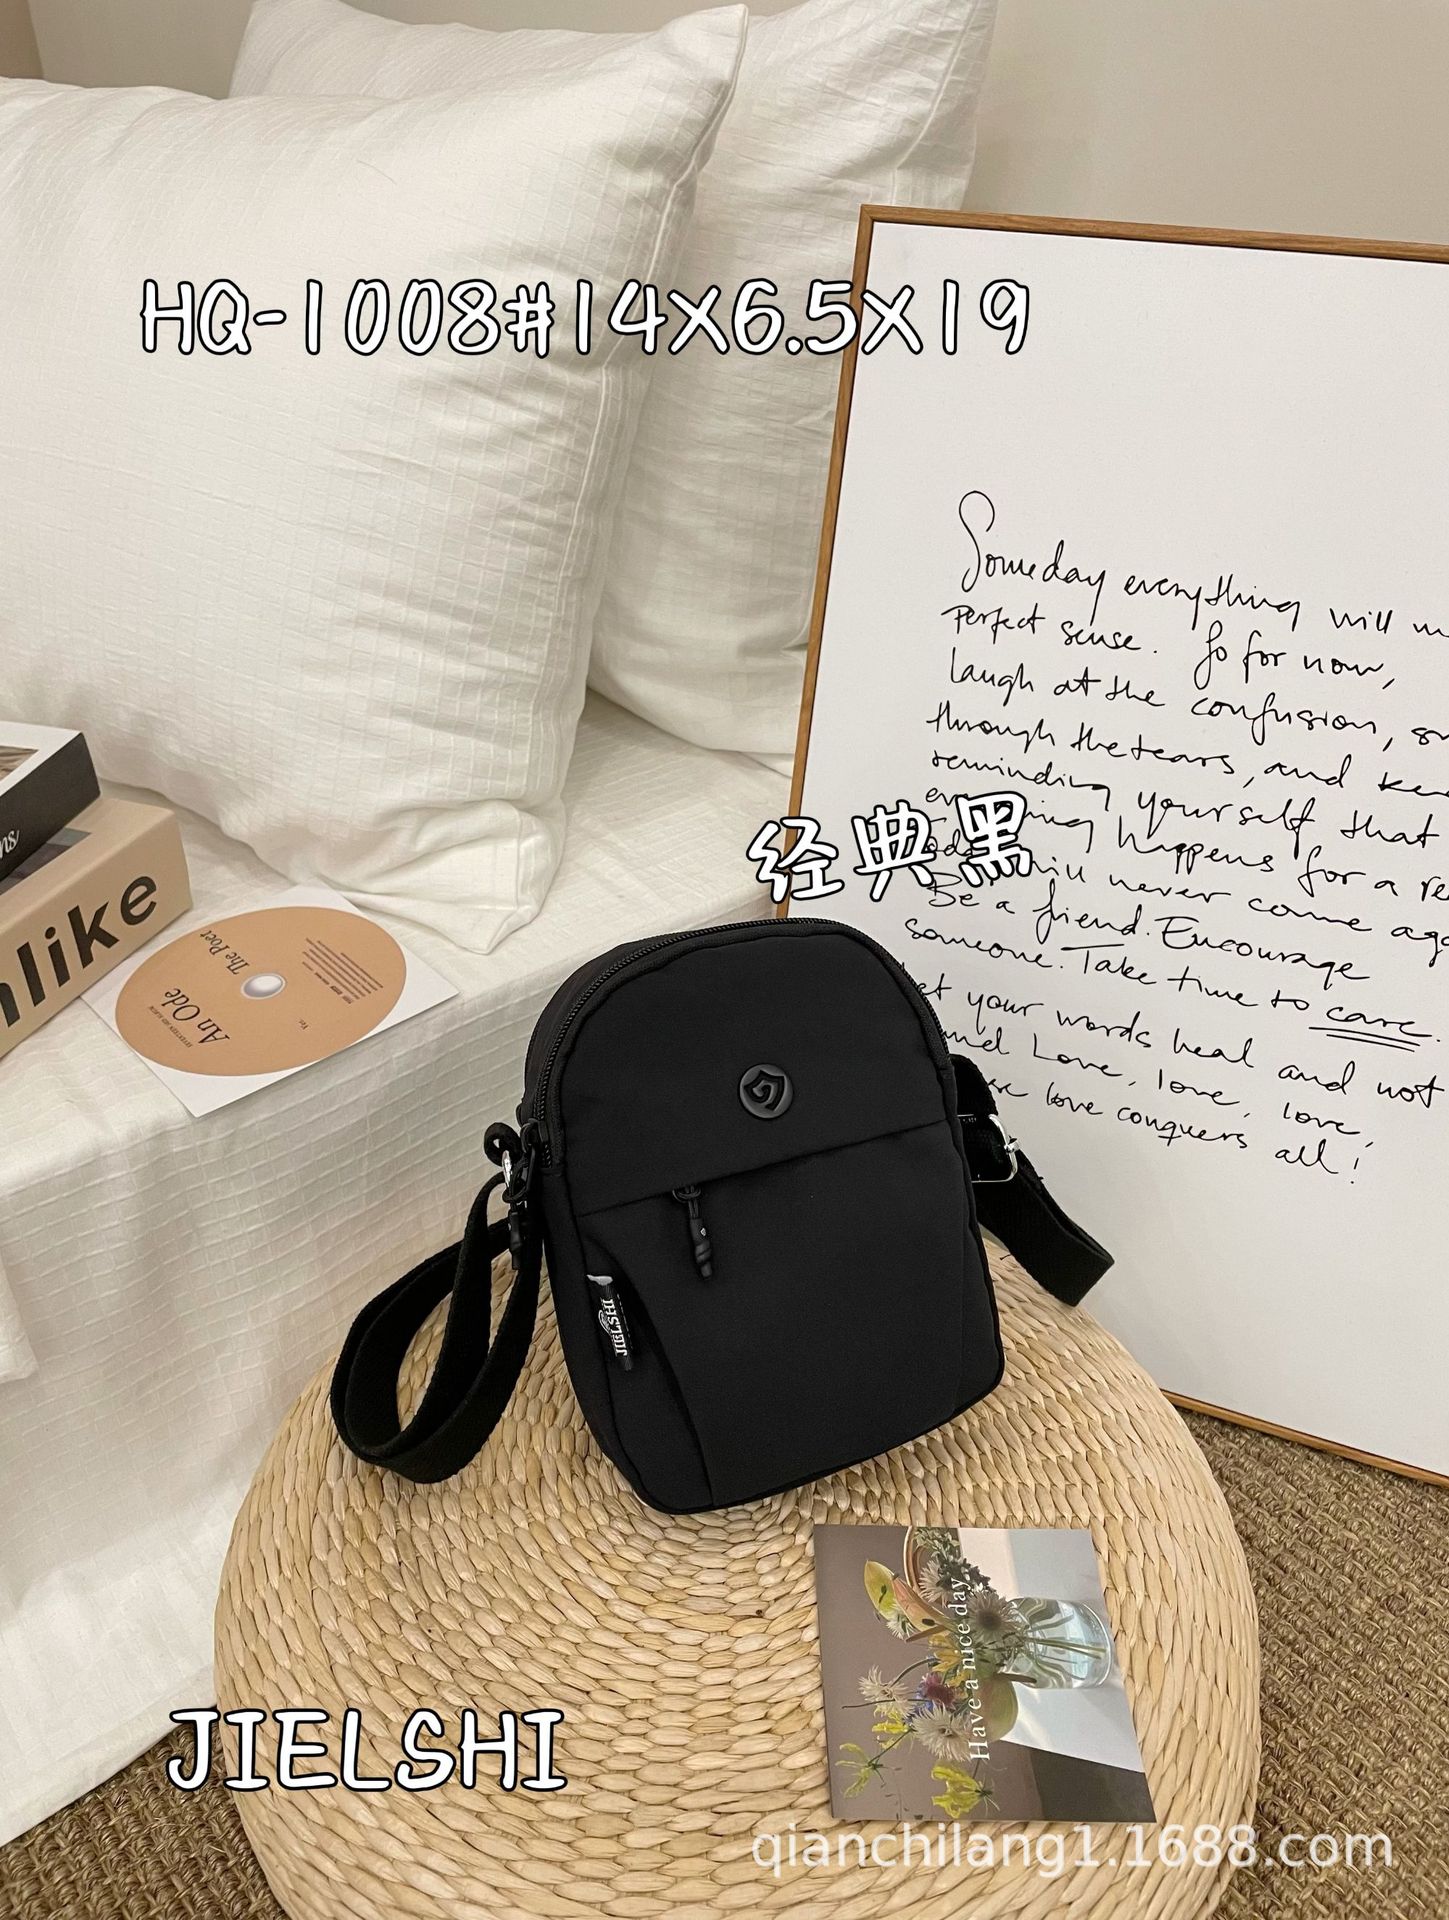 HQ-1008#14X6.5X19
Someday everything will m
Perfect sense. So for now,
laugh at the confusion, sm
through the tears, and kee
reminding yourself that
happens for a re
never come aga
经典黑
Be a friend. Encourage
someone. Take time to care.
your words heal and not
Love, love, love,
love conquers all!
ns
nlike
An Ode
The Poet
Ver.
JIELSHI
Have a nice day.
JIELSHI
qianchilang1.1688.com